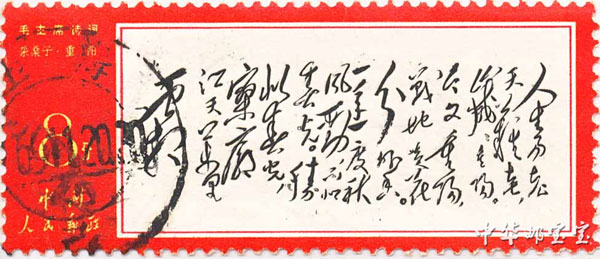 毛主席诗词
采桑子·重阳
8分
中国
人民邮政
人生易老
天难老,
岁岁重阳。
今又重阳,
战地黄花
分外香。
一年一度秋
风劲,不似
春光。胜
似春光,
寥廓
江天万里
霜
中华邮宝宝